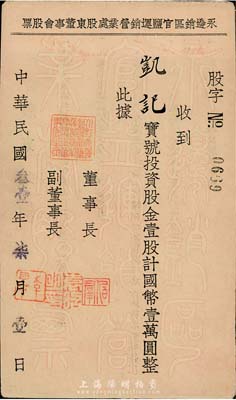 永邊銷區官鹽運銷營業處股東董事會股票
股字 No. 0639
收到
凱記 寶號投資股金壹股計國幣壹萬圓整
此據
董事長
副董事長
中華民國叁壹年柒月壹日